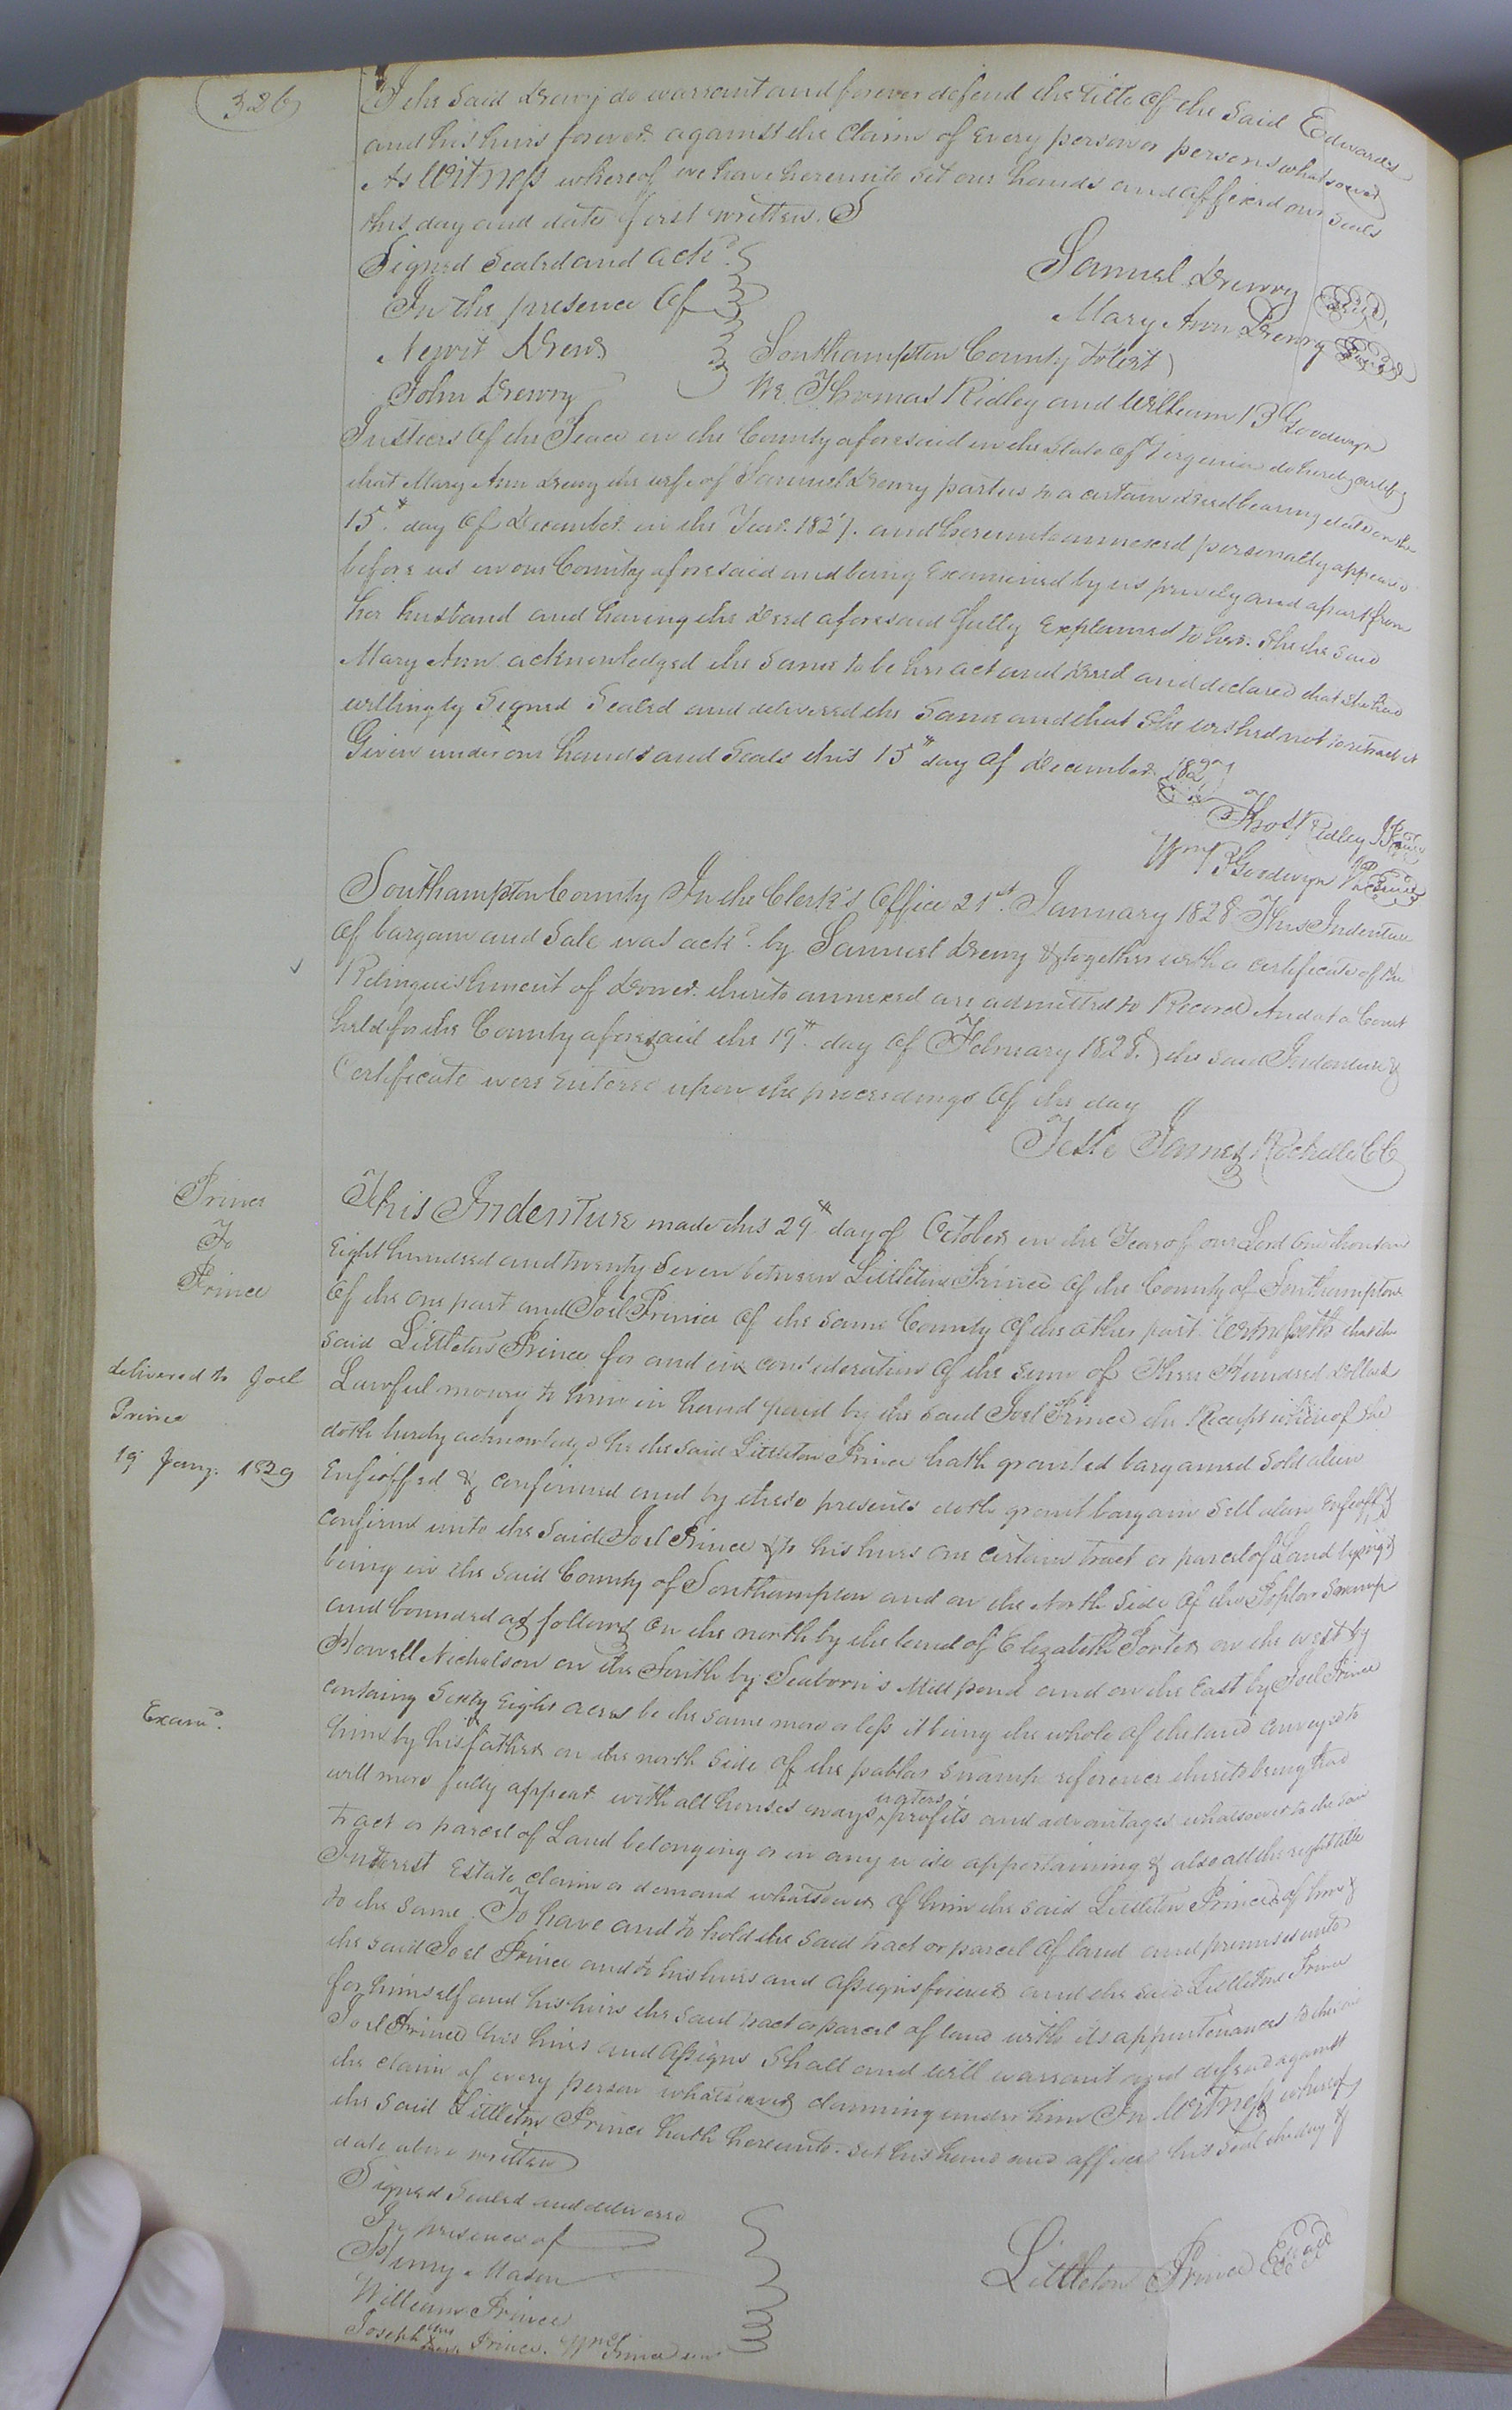 326
The said Drewry do warrant and forever defend the title of the said Edwards
and his heirs forever against the Claim of Every person or persons whatsoever
As Witness whereof we have hereunto Set our hands and affixed our Seals
this day and date first written.
Signed Sealed and ackd.
In the presence Of
Drews
John Drewry
Samuel Drewry Seal
Mary Ann Drewry Seal
Southampton County to wit
We Thomas Ridley and William B Goodwyn
Justices Of the Peace in the County aforesaid in the State Of Virginia do hereby certify
that Mary Ann Drewry the wife of Samuel Drewry parties to a certain deed bearing date on the
15th day Of December in the Year 1827. and hereunto annexed personally appeared
before us in our County aforesaid and being Examined by us privily and apart from
her husband and having the deed aforesaid fully Explained to her. She the Said
Mary Ann acknowledged the same to be her act and deed and declared that she had
willingly Signed Sealed and delivered the Same and that She wished not to retract it
Given under our hands and Seals this 15th day Of December 1827
Thos. Ridley JP Seal
Wm B Goodwyn JP Seal
Southampton County In the Clerk's Office 21st. January 1828 This Indenture
Of bargain and Sale was ackd. by Samuel Drewry & together with a certificate of the
Relinquishment of Dower thereto annexed are admitted to Record And at a Court
held for the County aforesaid the 19th day Of February 1828. the said Indenture &
Certificate were Entered upon the proceedings Of the day
Teste James Rochelle CC
Prince
To
Prince
delivered to Joel
Prince
19 Jany. 1829
Examd.
This Indenture made this 29th day of October in the Year of our Lord One thousand
Eight hundred and twenty Seven between Littleton Prince Of the County of Southampton
Of the one part and Joel Prince Of the same County Of the other part Witnesseth that the
said Littleton Prince for and in consideration Of the sum of Three Hundred dollars
Lawful money to him in hand paid by the said Joel Prince the Receipt whereof he
doth hereby acknowledge he the said Littleton Prince hath granted bargained Sold alien
Enfeoffed & confirmed and by these presents doth grant bargain Sell alien Enfeoff &
Confirm unto the Said Joel Prince & to his heirs one certain tract or parcel of Land lying &
being in the said County of Southampton and on the North Side Of the Poplar Swamp
and bounded as follows on the north by the land of Elizabeth Porter on the west by
Howell Nicholson on the South by Seaborn's Mill pond and on the East by Joel Prince
containg Sixty Eight acres be the same more or less it being the whole of the land conveyed to
him by his father on the north Side of the pablar Swamp reference thereto being had
will more fully appear with all houses ways waters profits and advantages whatsoever to the said
tract or parcel of Land belonging or in any wise appertaining & also all the right title
Interest Estate claim or demand whatsoever of him the said Littleton Prince of him &
to the same. To have and to hold the said tract or parcel Of land and premises unto
the said Joel Prince and to his heirs and assigns forever and the said Littleton Prince
for himself and his heirs the said tract or parcel of land with its appurtenances to the
Joel Prince his heirs and assigns Shall and will warrant and defend against
the claim of every person whatsoever claiming under him In Witness whereof
the said Littleton Prince hath hereunto set his hand and affixed his Seal the day &
date above written
Signed Sealed and delivered
In presence of
Henry Mason
William Prince
Joseph Prince.
Littleton Prince Seal